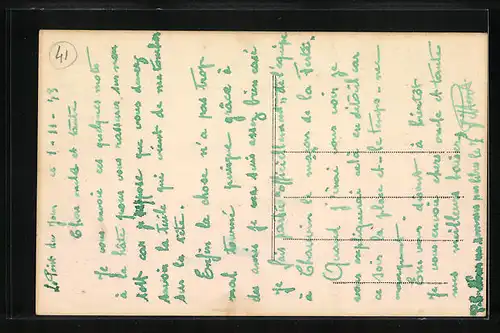 41
Le Pont du Jour ce 1-11-43
Chers oncle et tante
Je vous envoie ces quelques mots
à la hâte pour vous rassurer sur mon
sort car je suppose que vous devez
savoir la tuile qui vient de me tomber
sur la tête.
Enfin la chose n'a pas trop
mal tourné puisque grâce à
des amis je me suis assez bien casé
je fais partie "officiellement" de l'équipe
à Charvin le maçon de la Ferté.
Quand j'irai vous voir je
vous expliquerai cela en détail car
ce soir la place et le temps me
manquent.
En vous disant à bientôt
Je vous envoie chers oncle et tante
mes meilleurs baisers